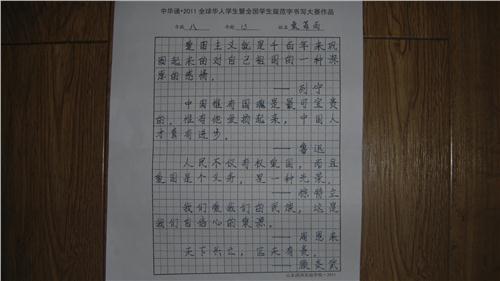 中华诵•2011全球华人学生暨全国学生规范字书写大赛作品
年龄 八 年级 13 姓名
爱国主义就是千百年来巩
固起来的对自己祖国的一种深
厚的感情。
——列宁
中国惟有国魂是最可宝贵
的，惟有他发扬起来，中国人
才有真进步。
——鲁迅
人民不仅有权爱国，而且
爱国是个义务，是一种光荣。
——徐特立
我们爱我们的民族，这是
我们自信心的泉源。
——周恩来
天下兴亡，匹夫有责。
——顾炎武